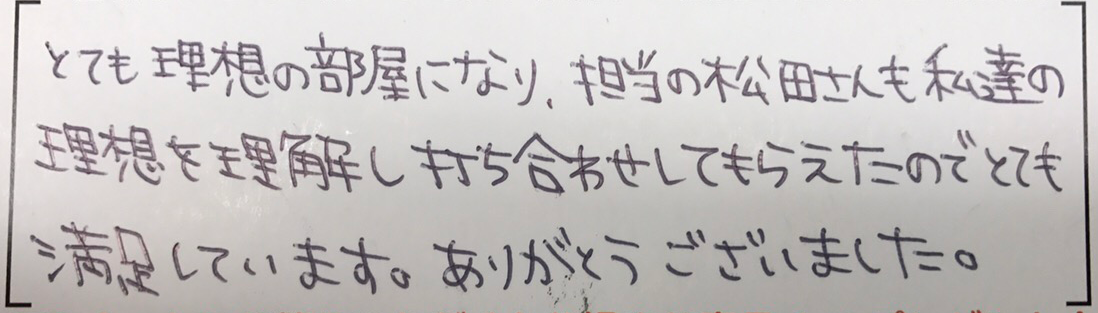 とても理想の部屋になり、担当の松田さんも私達の
理想を理解し打ち合わせしてもらえたのでとても
満足しています。ありがとうございました。